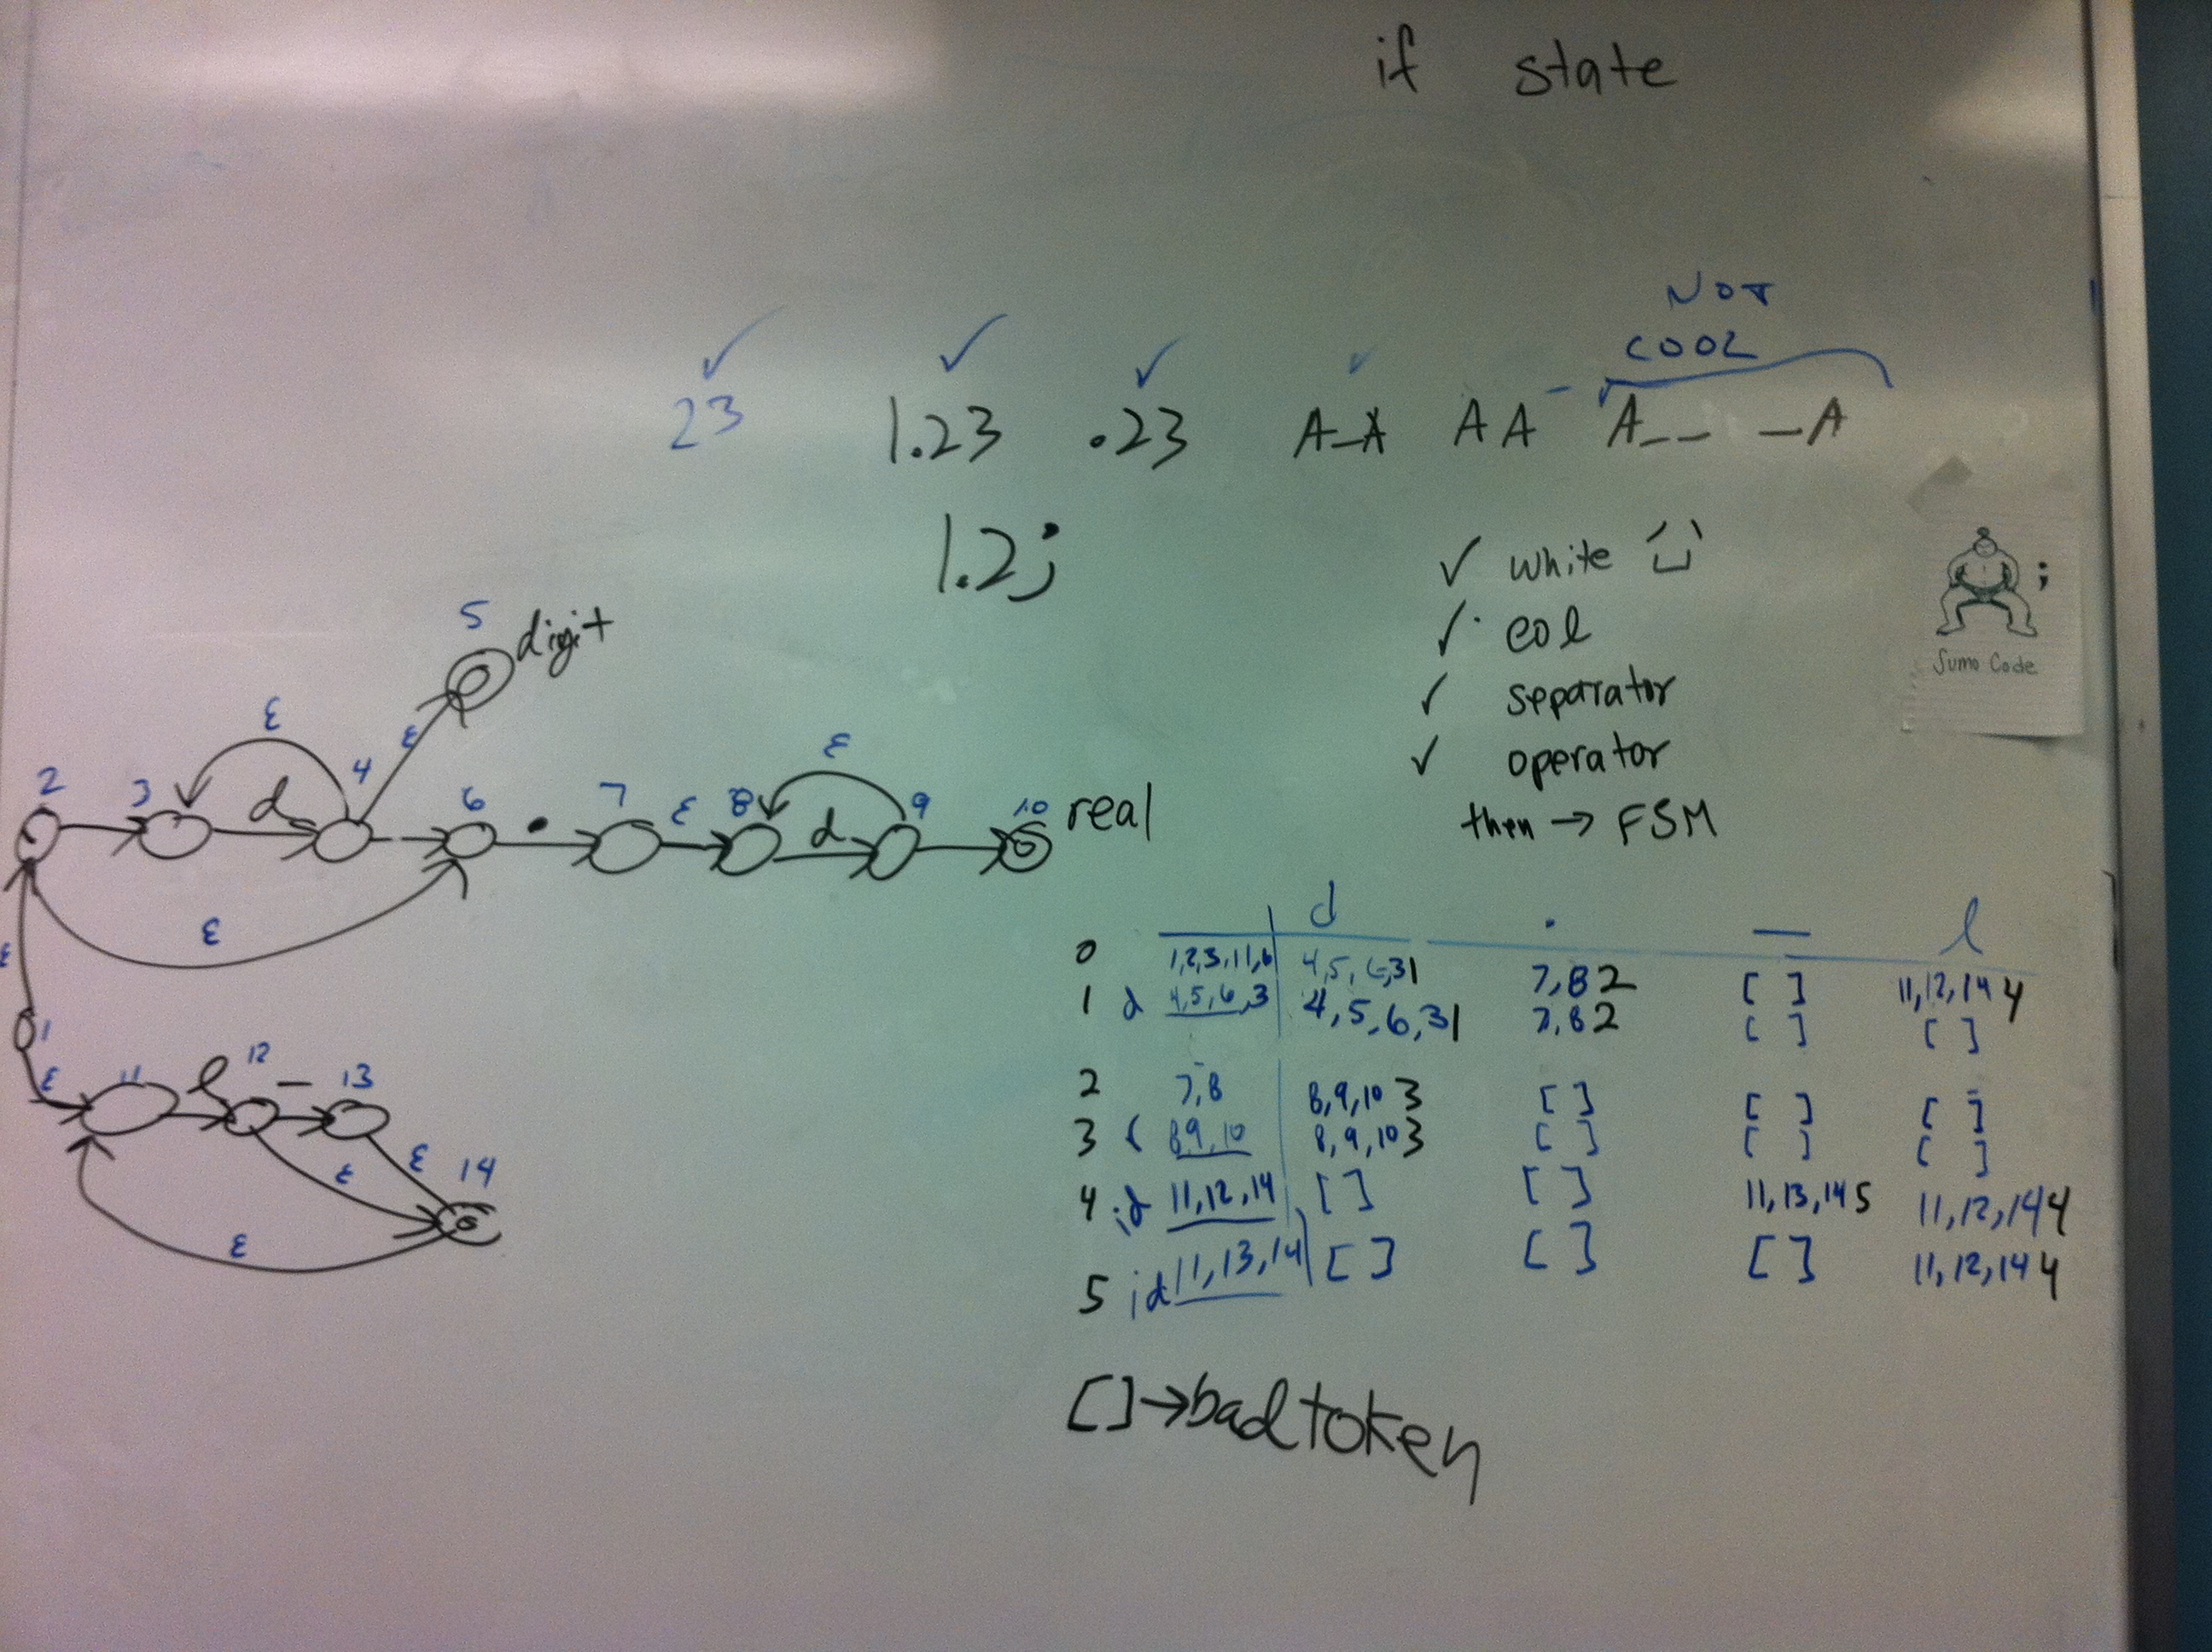 if state
NOT
COOL
23 1.23 .23 A_A AA_ A__ _A
1.2;
✓ white ⌴
✓ eol
✓ separator
✓ operator
then → FSM
;
Sumo Code
5 digit
ε ε
2 3 d 4 6 . 7 ε 8 ε d 9 10 real
ε
ε
1
ε 11 l 12 _ 13
ε ε 14
ε
d . _ l
0 1,2,3,11,6 4,5,6,3 1 7,8 2 [ ] 11,12,14 4
1 d 4,5,6,3 4,5,6,3 1 7,8 2 [ ] [ ]
2 7,8 8,9,10 3 [ ] [ ] [ ]
3 r 8,9,10 8,9,10 3 [ ] [ ] [ ]
4 id 11,12,14 [ ] [ ] 11,13,14 5 11,12,14 4
5 id 11,13,14 [ ] [ ] [ ] 11,12,14 4
[] → bad token